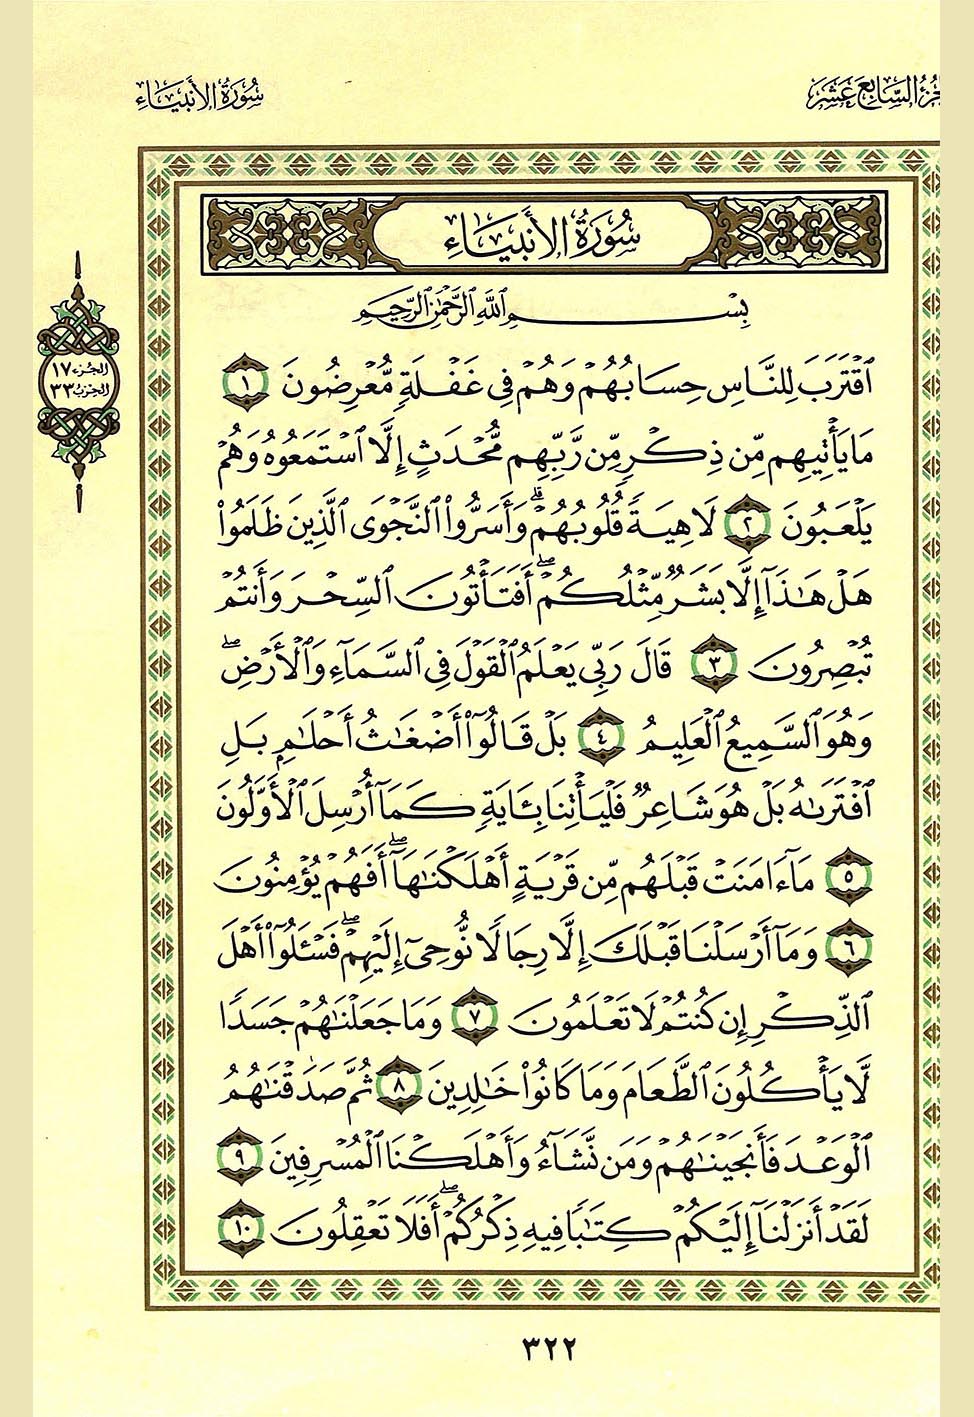 سُورَةُ الأَنبِيَاءِ
الجُزْءُ السَّابِعَ عَشَرَ
سُورَةُ الأَنبِيَاءِ
بِسْمِ ٱللَّهِ ٱلرَّحْمَٰنِ ٱلرَّحِيمِ
الجزء ١٧
الحزب ٣٣
ٱقْتَرَبَ لِلنَّاسِ حِسَابُهُمْ وَهُمْ فِي غَفْلَةٍ مُّعْرِضُونَ ١
مَا يَأْتِيهِم مِّن ذِكْرٍ مِّن رَّبِّهِم مُّحْدَثٍ إِلَّا ٱسْتَمَعُوهُ وَهُمْ
يَلْعَبُونَ ٢ لَاهِيَةً قُلُوبُهُمْ ۗ وَأَسَرُّوا۟ ٱلنَّجْوَى ٱلَّذِينَ ظَلَمُوا۟
هَلْ هَـٰذَآ إِلَّا بَشَرٌ مِّثْلُكُمْ ۖ أَفَتَأْتُونَ ٱلسِّحْرَ وَأَنتُمْ
تُبْصِرُونَ ٣ قَالَ رَبِّي يَعْلَمُ ٱلْقَوْلَ فِي ٱلسَّمَآءِ وَٱلْأَرْضِ ۖ
وَهُوَ ٱلسَّمِيعُ ٱلْعَلِيمُ ٤ بَلْ قَالُوٓا۟ أَضْغَـٰثُ أَحْلَـٰمٍ بَلِ
ٱفْتَرَىٰهُ بَلْ هُوَ شَاعِرٌ فَلْيَأْتِنَا بِـَٔايَةٍ كَمَآ أُرْسِلَ ٱلْأَوَّلُونَ
٥ مَآ ءَامَنَتْ قَبْلَهُم مِّن قَرْيَةٍ أَهْلَكْنَـٰهَآ ۖ أَفَهُمْ يُؤْمِنُونَ
٦ وَمَآ أَرْسَلْنَا قَبْلَكَ إِلَّا رِجَالًا نُّوحِىٓ إِلَيْهِمْ ۖ فَسْـَٔلُوٓا۟ أَهْلَ
ٱلذِّكْرِ إِن كُنتُمْ لَا تَعْلَمُونَ ٧ وَمَا جَعَلْنَـٰهُمْ جَسَدًا
لَّا يَأْكُلُونَ ٱلطَّعَامَ وَمَا كَانُوا۟ خَـٰلِدِينَ ٨ ثُمَّ صَدَقْنَـٰهُمُ
ٱلْوَعْدَ فَأَنجَيْنَـٰهُمْ وَمَن نَّشَآءُ وَأَهْلَكْنَا ٱلْمُسْرِفِينَ ٩
لَقَدْ أَنزَلْنَآ إِلَيْكُمْ كِتَـٰبًا فِيهِ ذِكْرُكُمْ ۖ أَفَلَا تَعْقِلُونَ ١٠
٣٢٢